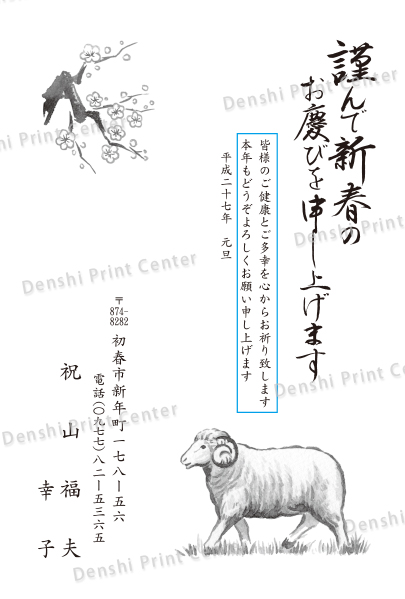 謹んで新春の
お慶びを申し上げます
皆様のご健康とご多幸を心からお祈り致します
本年もどうぞよろしくお願い申し上げます
平成二十七年　元旦
〒874-8282
初春市新年町一七八ー五六
電話(〇九七七)八二ー五三六五
祝山福夫
幸子
Denshi Print Center
Denshi Print Center
Denshi Print Center
Denshi Print Center
Denshi Print Center
Denshi Print Center
Denshi Print Center
Denshi Print Center
Denshi Print Center